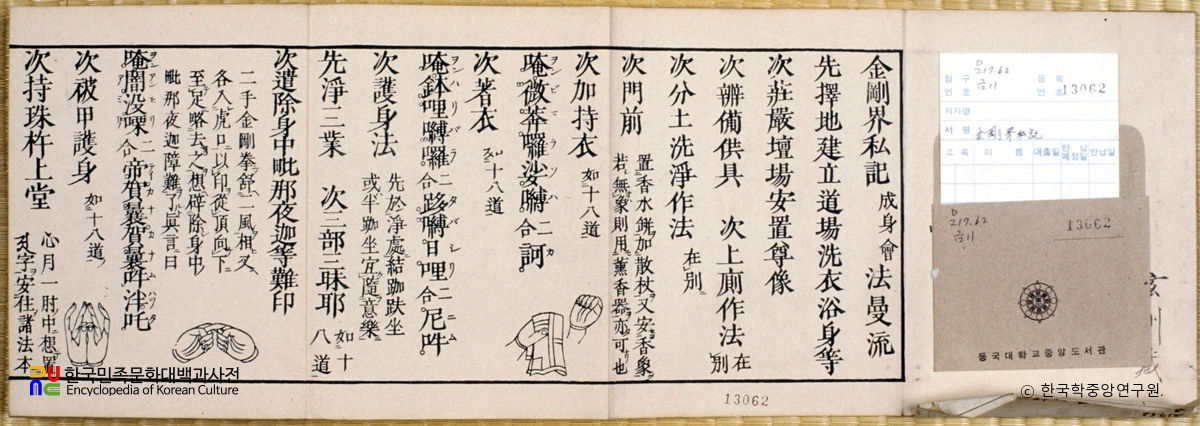 金剛界私記 成身會 法曼流
先擇地建立道場洗衣浴身等
次莊嚴壇場安置尊像
次辨備供具 次上廁作法 在別
次分土洗淨作法 在別
次門前 置香水餅加散杖又安香象
若無象則用薰香器亦可也
次加持衣 如十八道
唵微莽囉娑嚩二合訶
次著衣 如十八道
唵鉢哩嚩羅二合跢嚩日哩二合尼吽
次護身法 先於淨處結跏趺坐
或半跏坐宜隨意樂
先淨三業 次三部三昧耶 如十八道
次遣除身中毗那夜迦等難印
二手金剛拳舒二風相叉
各入虎口以印從頂向下
至足略去之想碎除身中
毗那夜迦障難了眞言曰
次被甲護身 如十八道
次持珠杵上堂 心月一肘中想置
字安住諸法本
청구번호
D
217.62
금11
등록번호 13062
저자명
서명 金剛界私記
소속 이름 대출일 반납예정일 반납일
D
217.62
금11
13062
동국대학교중앙도서관
13062
한국민족문화대백과사전
Encyclopedia of Korean Culture
© 한국학중앙연구원.